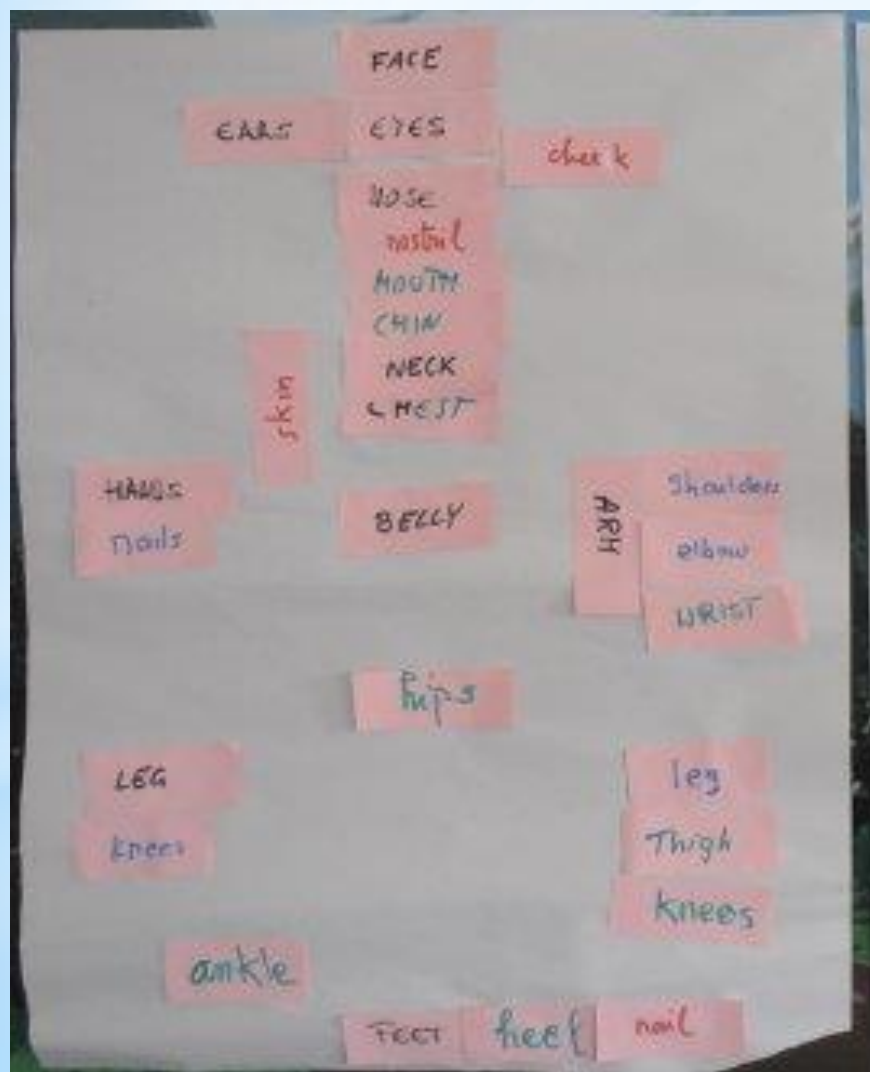 FACE
EARS EYES
cheek
NOSE
nostril
MOUTH
CHIN
NECK
CHEST
skin
HANDS
nails
BELLY
ARM
Shoulders
elbow
WRIST
hips
LEG
knees
leg
Thigh
knees
ankle
FEET heel nail